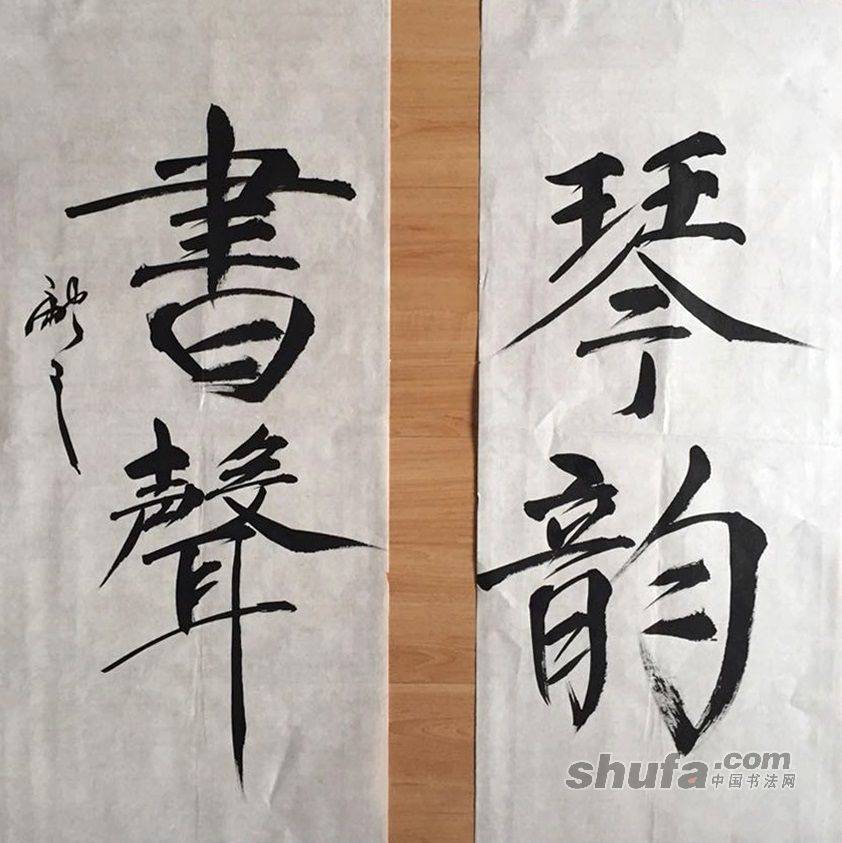 琴韵
書聲
shufa.com
中国书法网